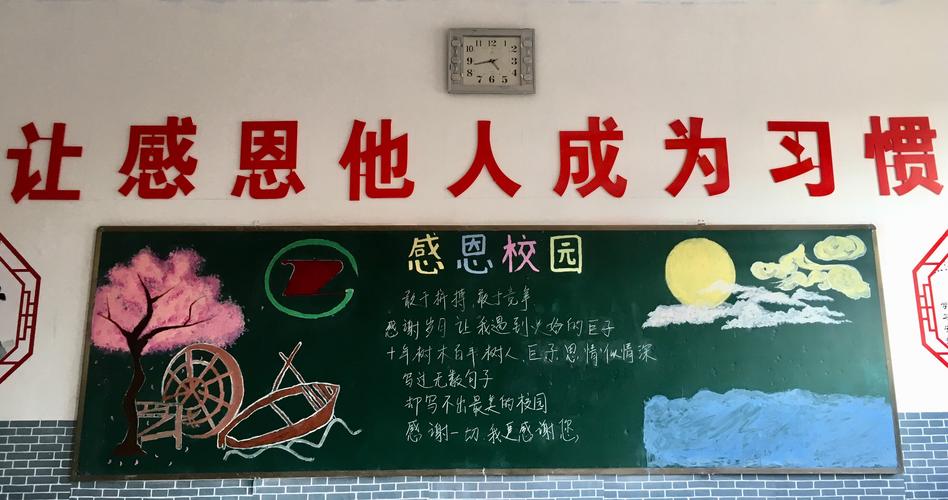 12
1
2
3
4
5
6
7
8
9
10
11
让感恩他人成为习惯
感恩校园
敢于拼搏,敢于竞争
感谢岁月让我遇到美好的巨子
十年树木百年树人,巨子恩情似情深
写过无数句子
却写不出最美的校园
感谢一切,我更感谢您